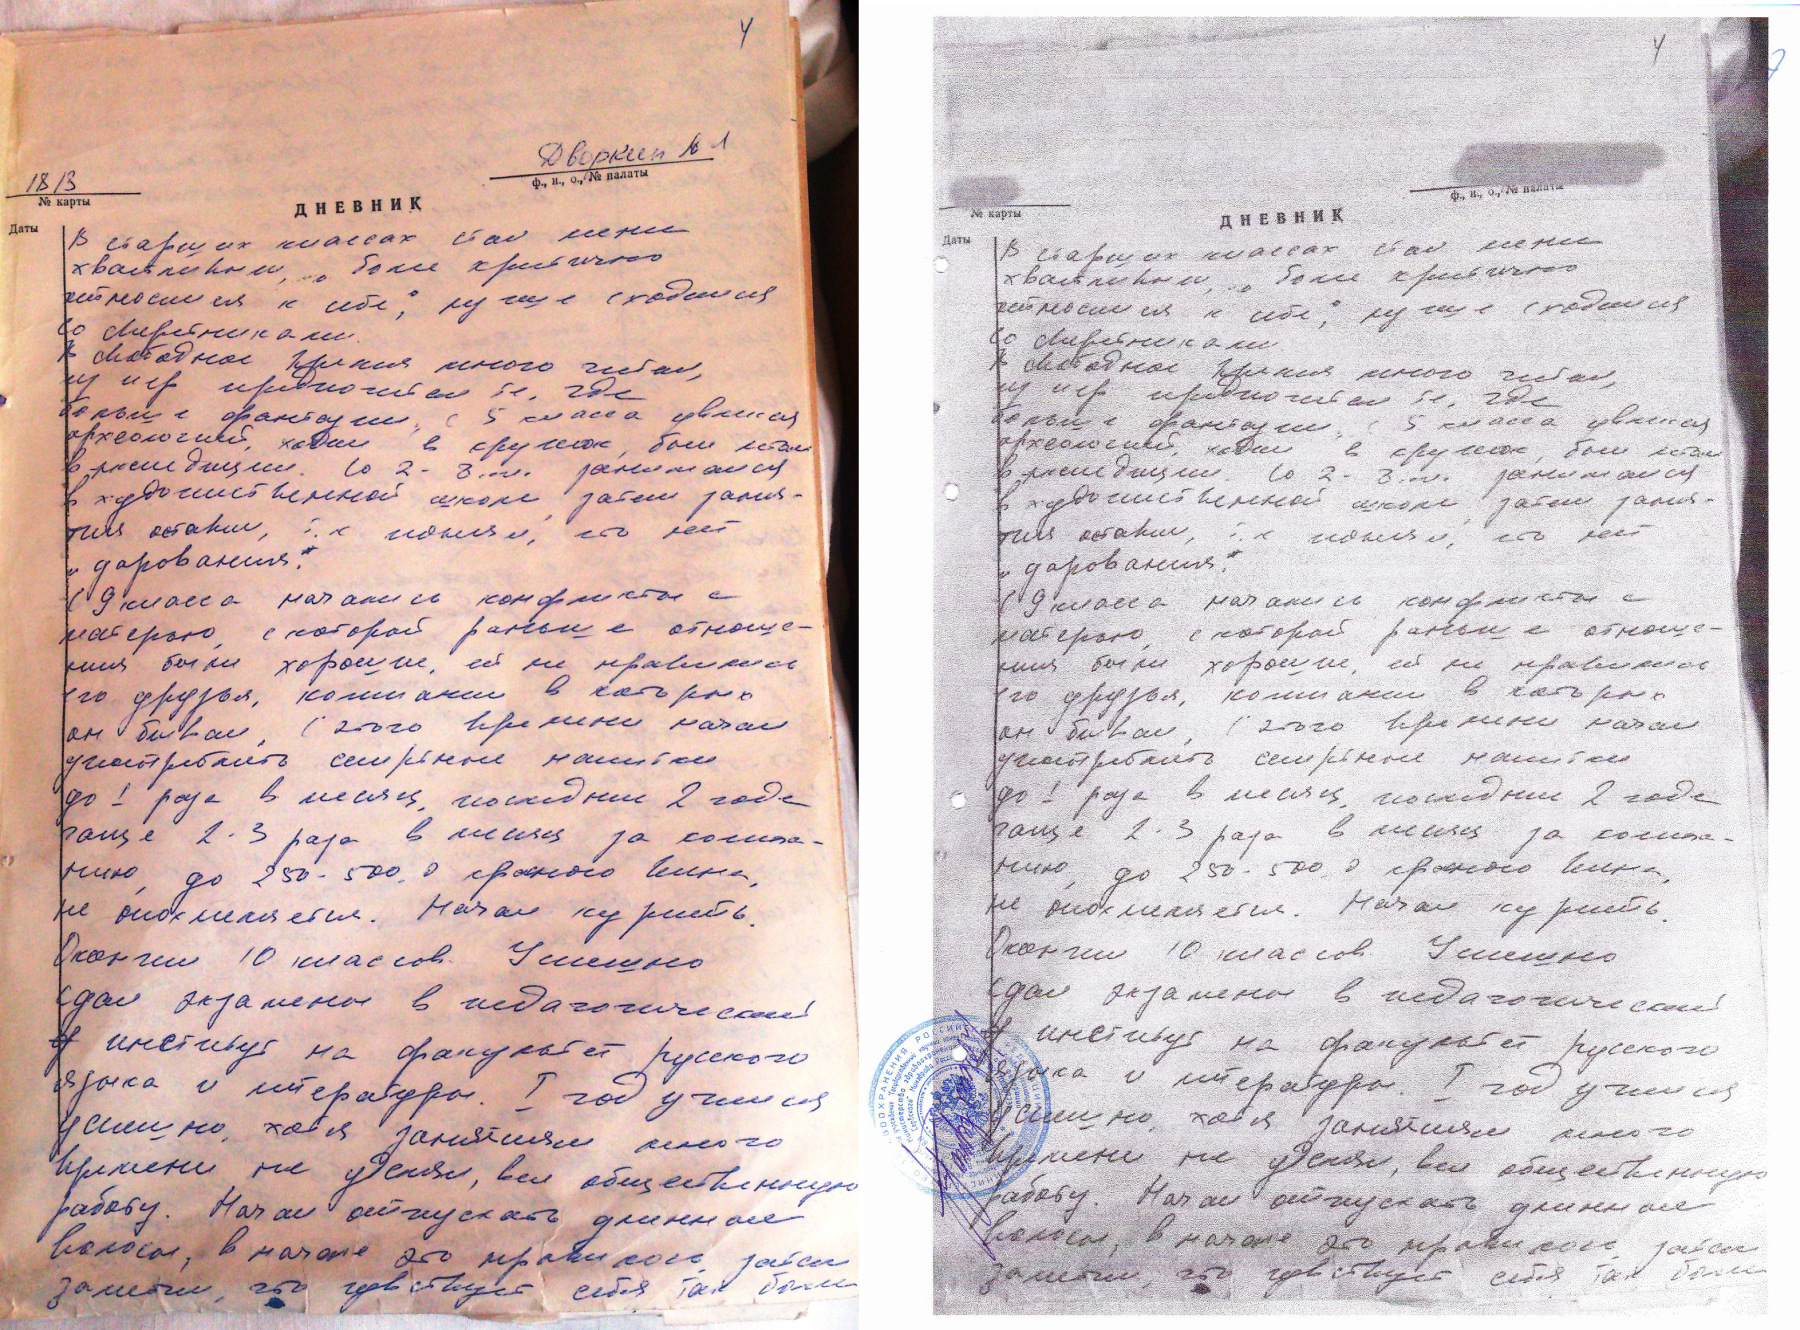 4
Дворкин № 1
ф., и., о., № палаты
18/3
№ карты
ДНЕВНИК
Даты
В старших классах стал менее
хвастливым, более критично
относился к себе, лучше сходился
со сверстниками.
В свободное время много читал,
игр предпочитал те, где
больше фантазии, с 5 класса увлекся
археологией, ходил в кружок, был летом
в экспедиции. Со 2-3 кл. занимался
в художественной школе, затем заня-
тия оставил, т.к понял, что нет
„дарования".
С 9 класса начались конфликты с
матерью, с которой раньше отноше-
ния были хорошие, ей не нравились
его друзья, компании в которых
он бывал, С этого времени начал
употреблять спиртные напитки
до 1 раза в месяц, последние 2 года
чаще 2-3 раза в месяц за компа-
нию, до 250-500,0 красного вина,
не опохмеляется. Начал курить.
Окончил 10 классов. Успешно
сдал экзамены в педагогический
институт на факультет русского
языка и литературы. I год учился
успешно, хотя занятиям много
времени не уделял, вел общественную
работу. Начал отпускать длинные
волосы, в начале это нравилось, затем
заметил, что чувствует себя так более
4
ф., и., о., № палаты
№ карты
ДНЕВНИК
Даты
В старших классах стал менее
хвастливым, более критично
относился к себе, лучше сходился
со сверстниками.
В свободное время много читал,
игр предпочитал те, где
больше фантазии, с 5 класса увлекся
археологией, ходил в кружок, был летом
в экспедиции. Со 2-3 кл. занимался
в художественной школе, затем заня-
тия оставил, т.к понял, что нет
„дарования".
С 9 класса начались конфликты с
матерью, с которой раньше отноше-
ния были хорошие, ей не нравились
его друзья, компании в которых
он бывал, С этого времени начал
употреблять спиртные напитки
до 1 раза в месяц, последние 2 года
чаще 2-3 раза в месяц за компа-
нию, до 250-500,0 красного вина,
не опохмеляется. Начал курить.
Окончил 10 классов. Успешно
сдал экзамены в педагогический
институт на факультет русского
языка и литературы. I год учился
успешно, хотя занятиям много
времени не уделял, вел общественную
работу. Начал отпускать длинные
волосы, в начале это нравилось, затем
заметил, что чувствует себя так более